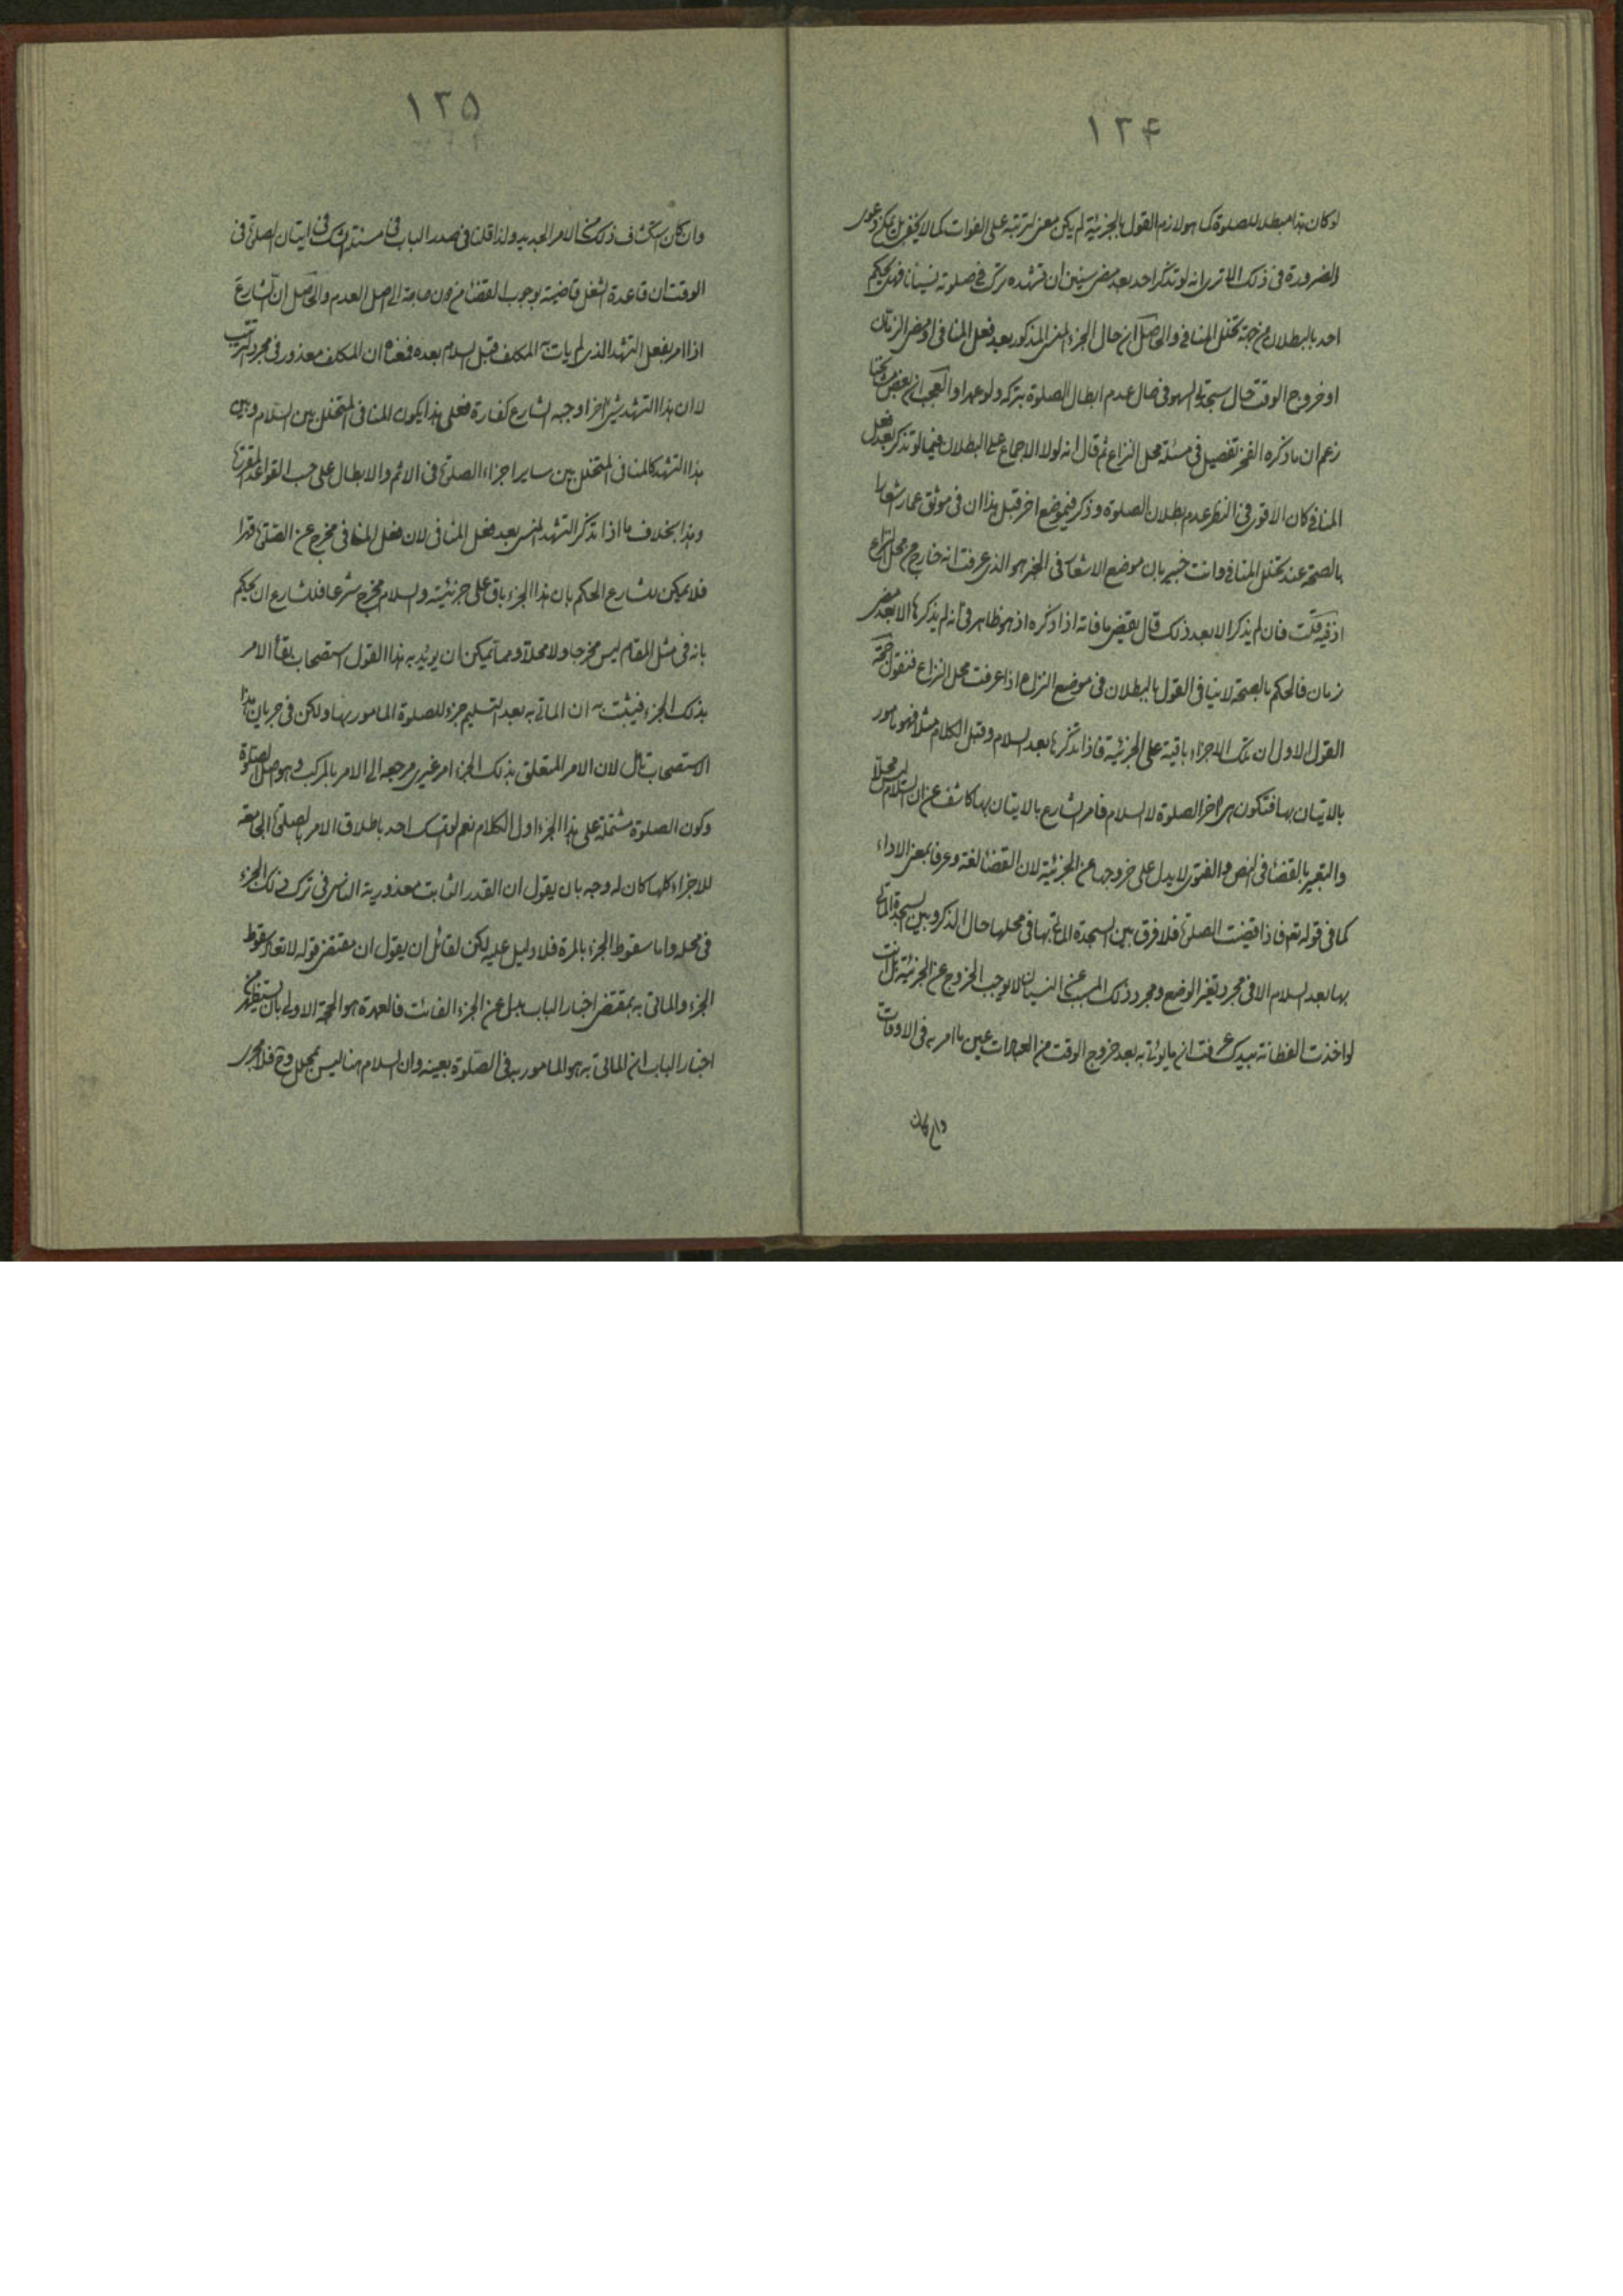 ۱۲۴
لو كان هذا مبطلا للصلوة كما هو لازم القول بالجزئية لم يكن معنى لترتبه على الفوات كما لا يخفى بل يمكن دعوى
الضرورة فى ذلك الا ترى انه لو تذكر احد بعد مضى سنين ان تشهده ترك فى صلوته نسيانا فهل يحكم
احد بالبطلان من جهة تخلل المنافى والحاصل ان حال الجزء المنسى المذكور بعد فعل المنافى او مضى الزمان
او خروج الوقت حال سجدتى السهو فى عدم ابطال الصلوة بتركه ولو عمدا والعجب ان بعض
زعم ان ما ذكره الفخر تفصيل فى مسئلة محل النزاع ثم قال انه لولا الاجماع على البطلان فيما لو تذكر بعد فعل
المنافى كان الاقوى فى النظر عدم بطلان الصلوة وذكر فى موضع اخر قبل هذا ان فى موثق عمار اشعارا
بالصحة عند تخلل المنافى وانت خبير بان موضع الاشعار فى الخبر هو الذى عرفت انه خارج عن محل النزاع
اذ فيه قلت فان لم يذكر الا بعد ذلك قال يقضى ما فاته اذا ذكره اذ هو ظاهر فى انه لم يذكرها الا بعد مضى
زمان فالحكم بالصحة لا ينافى القول بالبطلان فى موضع النزاع اذا عرفت محل النزاع فنقول حجة
القول الاول ان تلك الاجزاء باقية على الجزئية فاذا تذكرها بعد السلام وقبل الكلام مثلا فهو مامور
بالاتيان بها فتكون هى اخر الصلوة لا السلام فامر الشارع بالاتيان بها كاشف عن ان السلام ليس محللا
والتعبير بالقضاء فى النص والفتوى لا يدل على خروجها عن الجزئية لان القضاء لغة وعرفا بمعنى الاداء
كما فى قوله تعم فاذا قضيت الصلوة فلا فرق بين السجدة الماتى بها فى محلها حال الذكر وبين السجدة الماتى
بها بعد السلام الا فى مجرد تغير الوضع ومجرد ذلك المسبب عن النسيان لا يوجب الخروج عن الجزئية بل انت
لو اخذت الفطانة بيدك عرفت ان ما يؤتى به بعد خروج الوقت من العبادات عين ما امر به فى الاوقات
وان كان
۱۲۵
وان كان استكشاف ذلك من الامر الجديد ولذا قلنا فى صدر الباب فى مسئلة الشك فى اتيان الصلوة فى
الوقت ان قاعدة الشغل قاضية بوجوب القضاء من دون حاجة الى اصل العدم والحاصل ان الشارع
اذا امر بفعل التشهد الذى لم يات به المكلف قبل السلام بعده فمعناه ان المكلف معذور فى مجرد الترتيب
لا ان هذا التشهد شئ اخر اوجبه الشارع كفارة فعلى هذا يكون المنافى المتخلل بين السلام وبين
هذا التشهد كالمنافى المتخلل بين ساير اجزاء الصلوة فى الاثم والابطال على حسب القواعد المقررة
وهذا بخلاف ما اذا تذكر التشهد المنسى بعد فعل المنافى لان فعل المنافى مخرج عن الصلوة قهرا
فلا يمكن للشارع الحكم بان هذا الجزء باق على جزئيته والسلام مخرج شرعا فللشارع ان يحكم
بانه فى مثل المقام ليس مخرجا ولا محللا ومما يمكن ان يؤيد به هذا القول استصحاب بقاء الامر
بذلك الجزء فيثبت به ان الماتى به بعد التسليم جزء للصلوة المامور بها ولكن فى جريان هذا
الاستصحاب تامل لان الامر المتعلق بذلك الجزء امر غيرى مرجعه الى الامر بالمركب وهو اصل الصلوة
وكون الصلوة مشتملة على هذا الجزء اول الكلام نعم لو تمسك احد باطلاق الامر بالصلوة الجامعة
للاجزاء كلها كان له وجه بان يقول ان القدر الثابت معذورية الناسى فى ترك ذلك الجزء
فى محله واما سقوط الجزء بالمرة فلا دليل عليه لكن لقائل ان يقول ان مقتضى قوله لا تعاد سقوط
الجزء والماتى به بمقتضى اخبار الباب بدل عن الجزء الفائت فالعمدة هو الحجة الاولى بان يستظهر من
اخبار الباب ان الماتى به هو المامور به فى الصلوة بعينه وان السلام هنا ليس بمحلل وح فلا مجرى